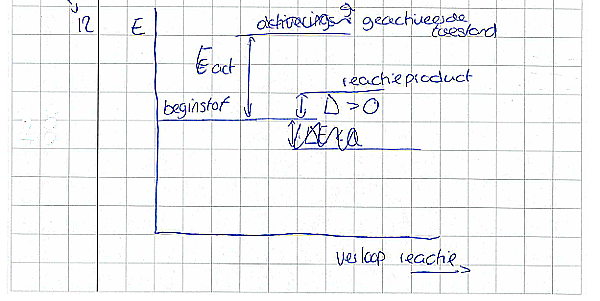 12 E geactiveerde
toestand
Eact
reactieproduct
beginstof Δ >0
verloop reactie